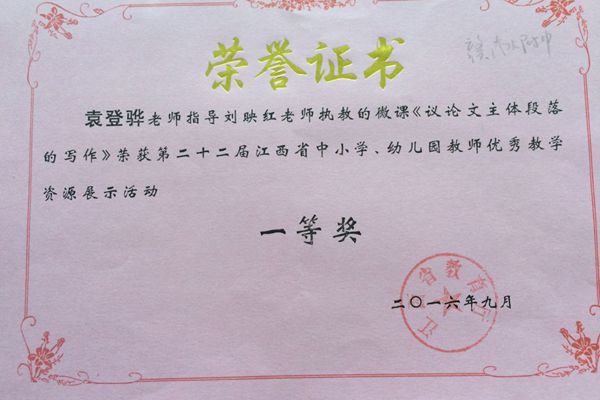 荣誉证书
袁登骅老师指导刘映红老师执教的微课《议论文主体段落
的写作》荣获第二十二届江西省中小学、幼儿园教师优秀教学
资源展示活动
一等奖
江西省教育厅
二〇一六年九月